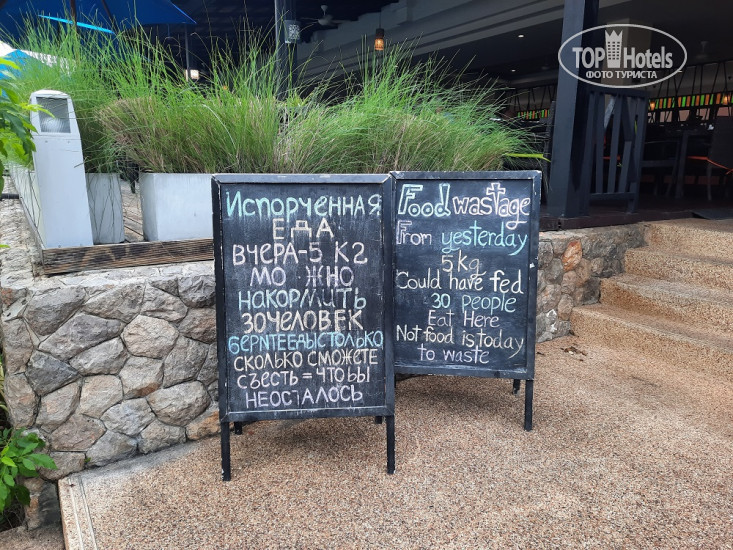 TOP Hotels
ФОТО ТУРИСТА
Испорченная
ЕДА
ВЧЕРА-5 КГ
МОЖНО
НАКОРМИТЬ
30 ЧЕЛОВЕК
СКОЛЬКО СМОЖЕТЕ
СЪЕСТЬ = ЧТО БЫ
НЕ ОСТАЛОСЬ
Food wastage
From yesterday
5 kg
Could have fed
30 people
Eat Here
Not food is today
to waste